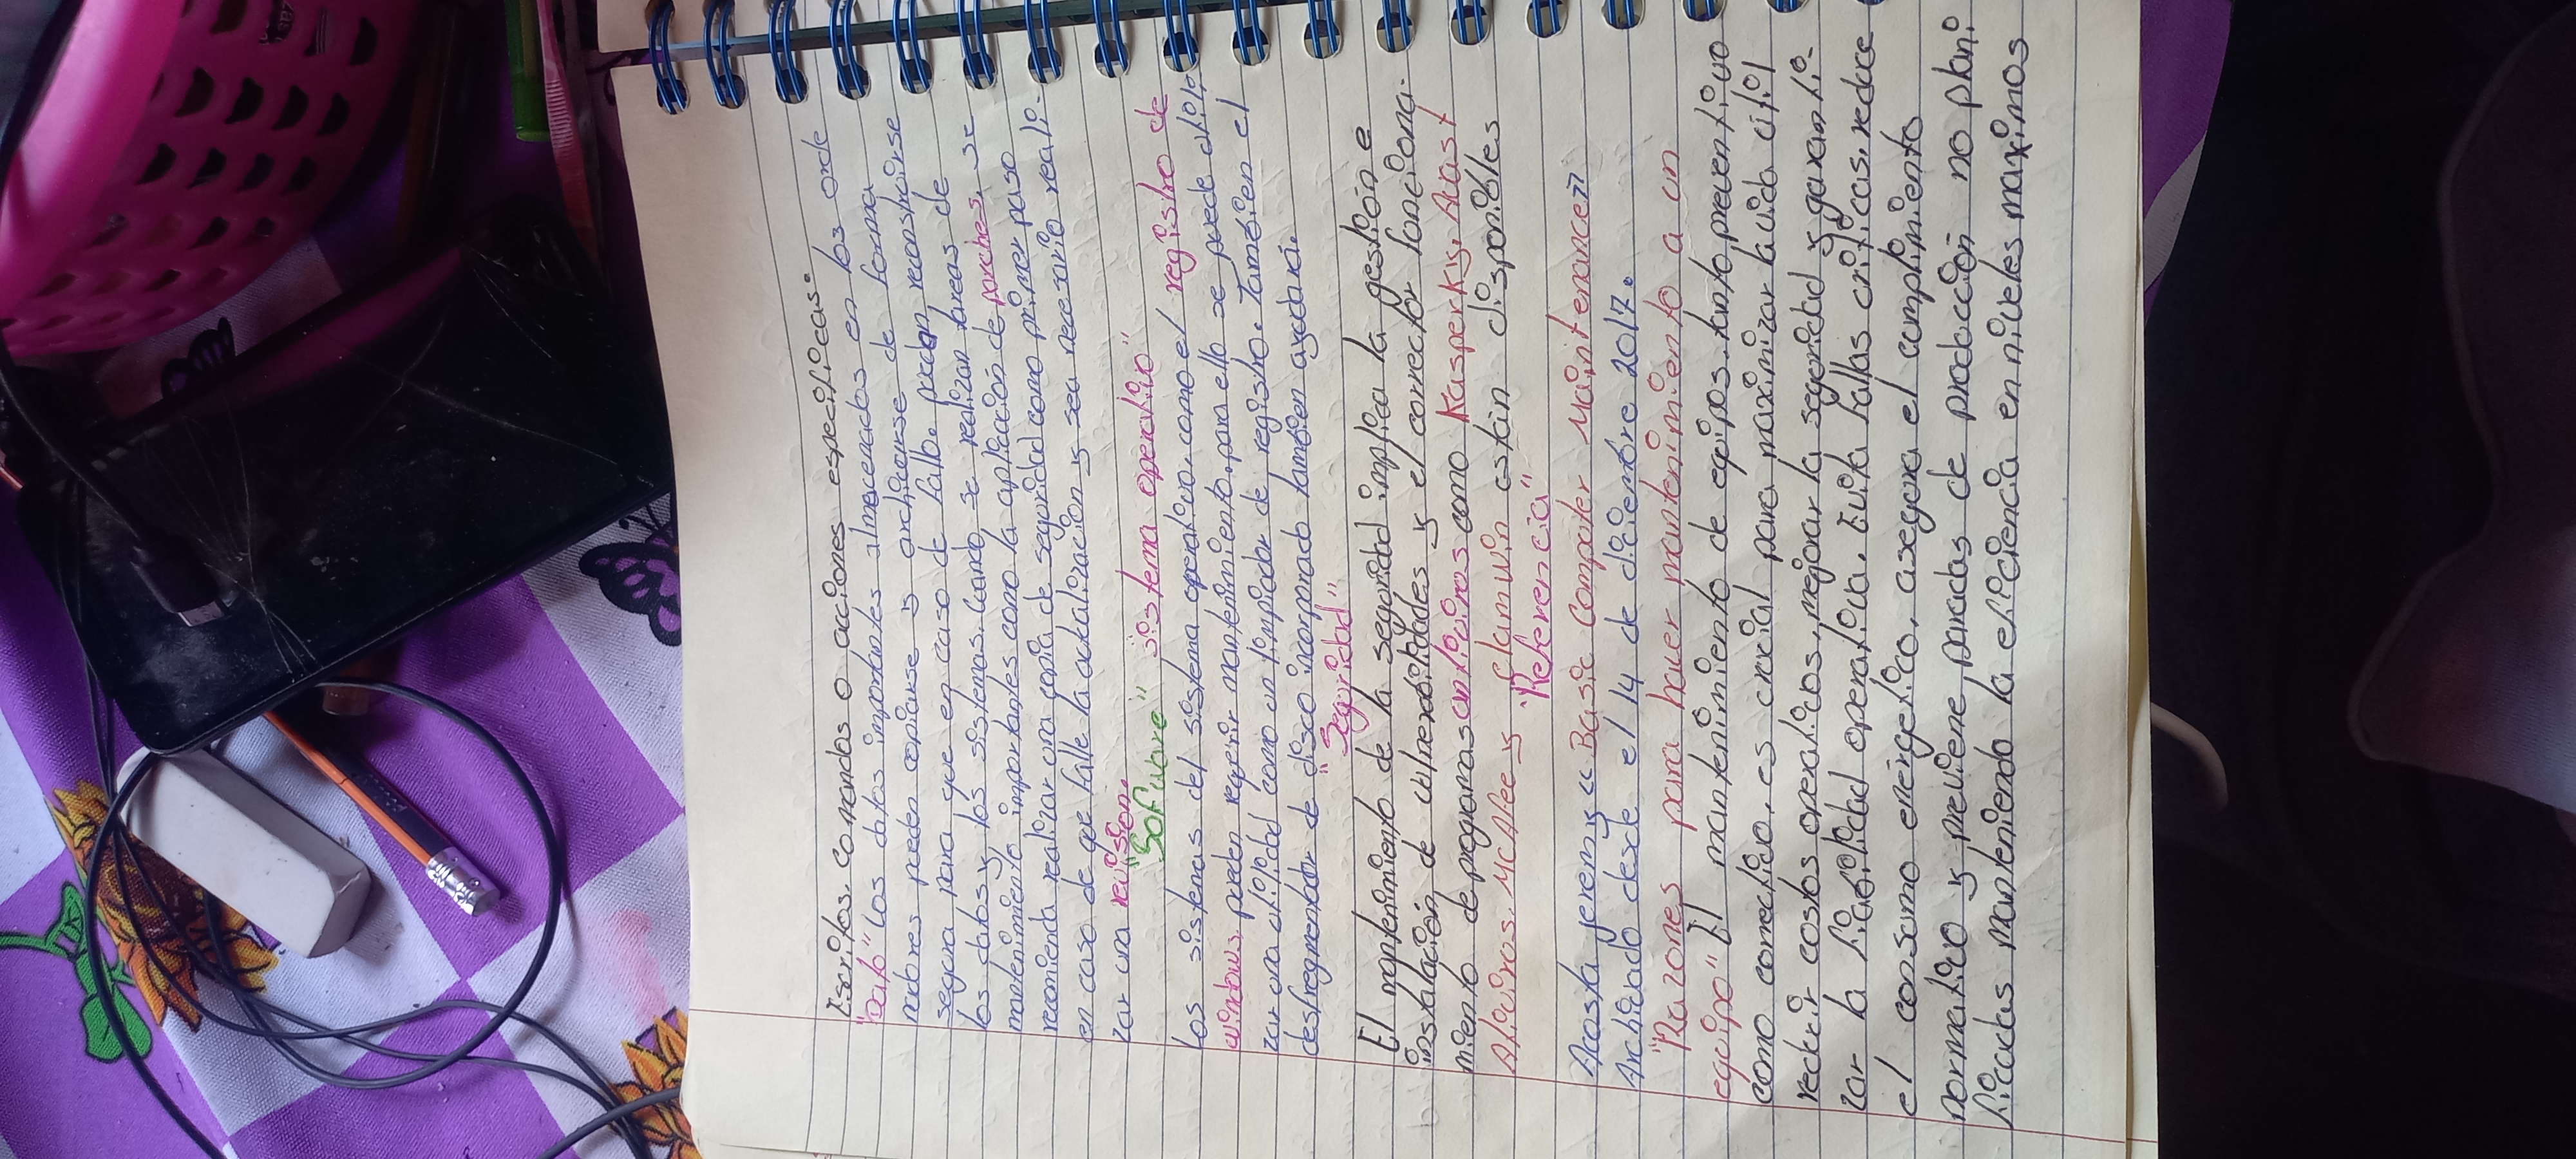 Escritos, comandos o acciones especificas.
"Dato" Los datos importantes almacenados en los orde
nadores pueden copiarse y archivarse de forma
segura para que en caso de fallo. puedan reconstruirse
los datos y los sistemas. Cuando se realizan tareas de
mantenimiento importantes como la aplicación de parches, se
recomienda realizar una copia de seguridad como primer paso
en caso de que falle la actualización y sea necesario reali-
zar una revisión.
"Sofware" sistema operativo"
Los sistemas del sistema operativo, como el registro de
windows, pueden requerir mantenimiento, para ello se puede utili
zar una utilidad como un limpiador de registro. También el
desfragmentador de disco incorporado también ayudará.
"Seguridad"
El mantenimiento de la seguridad implica la gestión e
instalación de vulnerabilidades y el correcto funciona-
miento de programas antivirus como Kaspersky, Avast
Ativiros, MCAfee y clamwin están disponibles
"Referencia"
Acosta jeremy "Basic Computer Maintenance"
Archivado desde el 14 de diciembre 2017.
"Razones para hacer mantenimiento a un
equipo" El mantenimiento de equipos, tanto preventivo
como correctivo, es crucial para maximizar la vida útil
reducir costos operativos, mejorar la seguridad y garanti-
zar la fiabilidad operativa. Evita fallas críticas, reduce
el consumo energetico, asegura el complimiento
normativo y previene paradas de producción no plani
ficadas manteniendo la eficiencia en niveles maximos